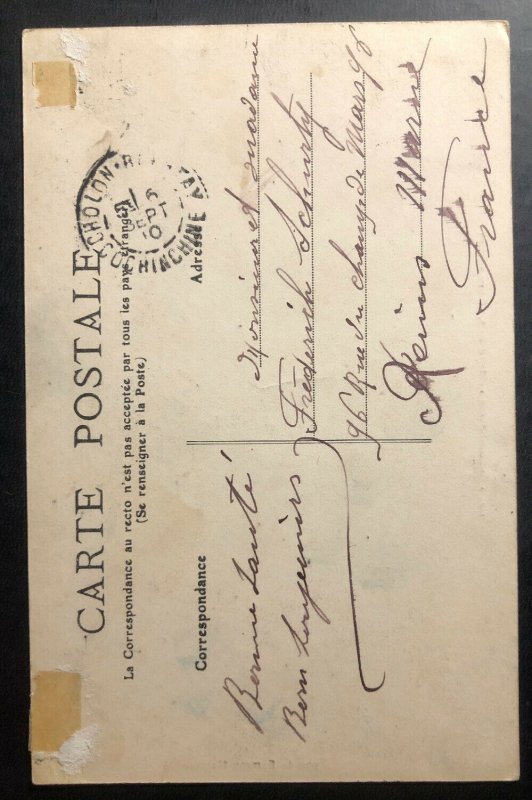 CARTE POSTALE
La Correspondance au recto n'est pas acceptée par tous les pays étrangers
(Se renseigner à la Poste)
Correspondance
Adresse
Bonne Santé
Bons
Monsieur et Madame
Frederich Schurty
96 Rue du champ de Mars 96
Reims Marne
France
CHOLON
SEPT